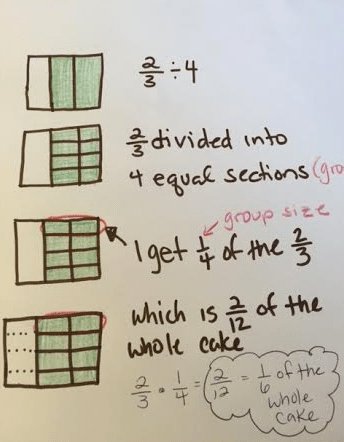 2/3 ÷ 4
2/3 divided into
4 equal sections
group size
I get 1/4 of the 2/3
which is 2/12 of the
whole cake
2/3 · 1/4 = 2/12 = 1/6 of the
whole
cake